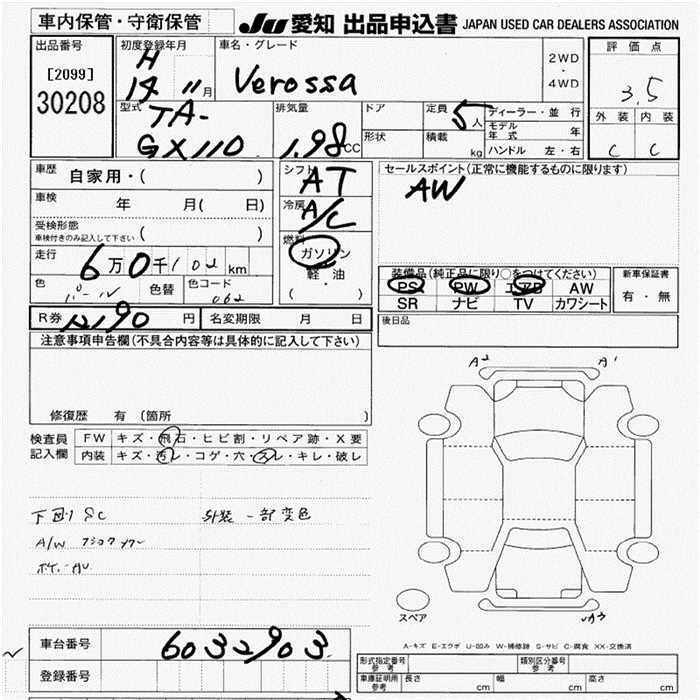 車内保管・守衛保管 JU 愛知 出品申込書 JAPAN USED CAR DEALERS ASSOCIATION
出品番号 初度登録年月 車名・グレード 評価点
[2099] H 14 11月 Verossa 2WD・4WD 3.5
30208
型式 排気量 ドア 定員 5人 ディーラー・並行 外装 内装
TA- モデル年式 年
GX110 1.98CC 形状 積載 kg ハンドル 左・右 C C
車歴 自家用・( ) シフト AT セールスポイント(正常に機能するものに限ります)
車検 年 月( 日) 冷房 A/C AW
受検形態 ( )
車検付きのみ記入して下さい
燃料 ガソリン
走行 6万0千102km 軽油 装備品(純正品に限り○をつけてください) 新車保証書
色 パール 色替 色コード 062 ( ) PS PW エアB AW 有・無
SR ナビ TV カワシート
R券 12190円 名変期限 月 日 後日品
注意事項申告欄(不具合内容等は具体的に記入して下さい)
A2 A1
修復歴 有 (箇所 )
検査員 FW キズ・飛石・ヒビ割・リペア跡・X要
記入欄 内装 キズ・汚レ・コゲ・穴・スレ・キレ・破レ
下回り SC 外装一部変色
A/W
スペア A3
A-キズ E-エクボ U-凹み W-補修跡 S-サビ C-腐食 XX-交換済
車台番号 6032903
登録番号
形式指定番号 参考 類別区分番号 参考
車庫証明用 参考 長さ cm 幅 cm 高さ cm